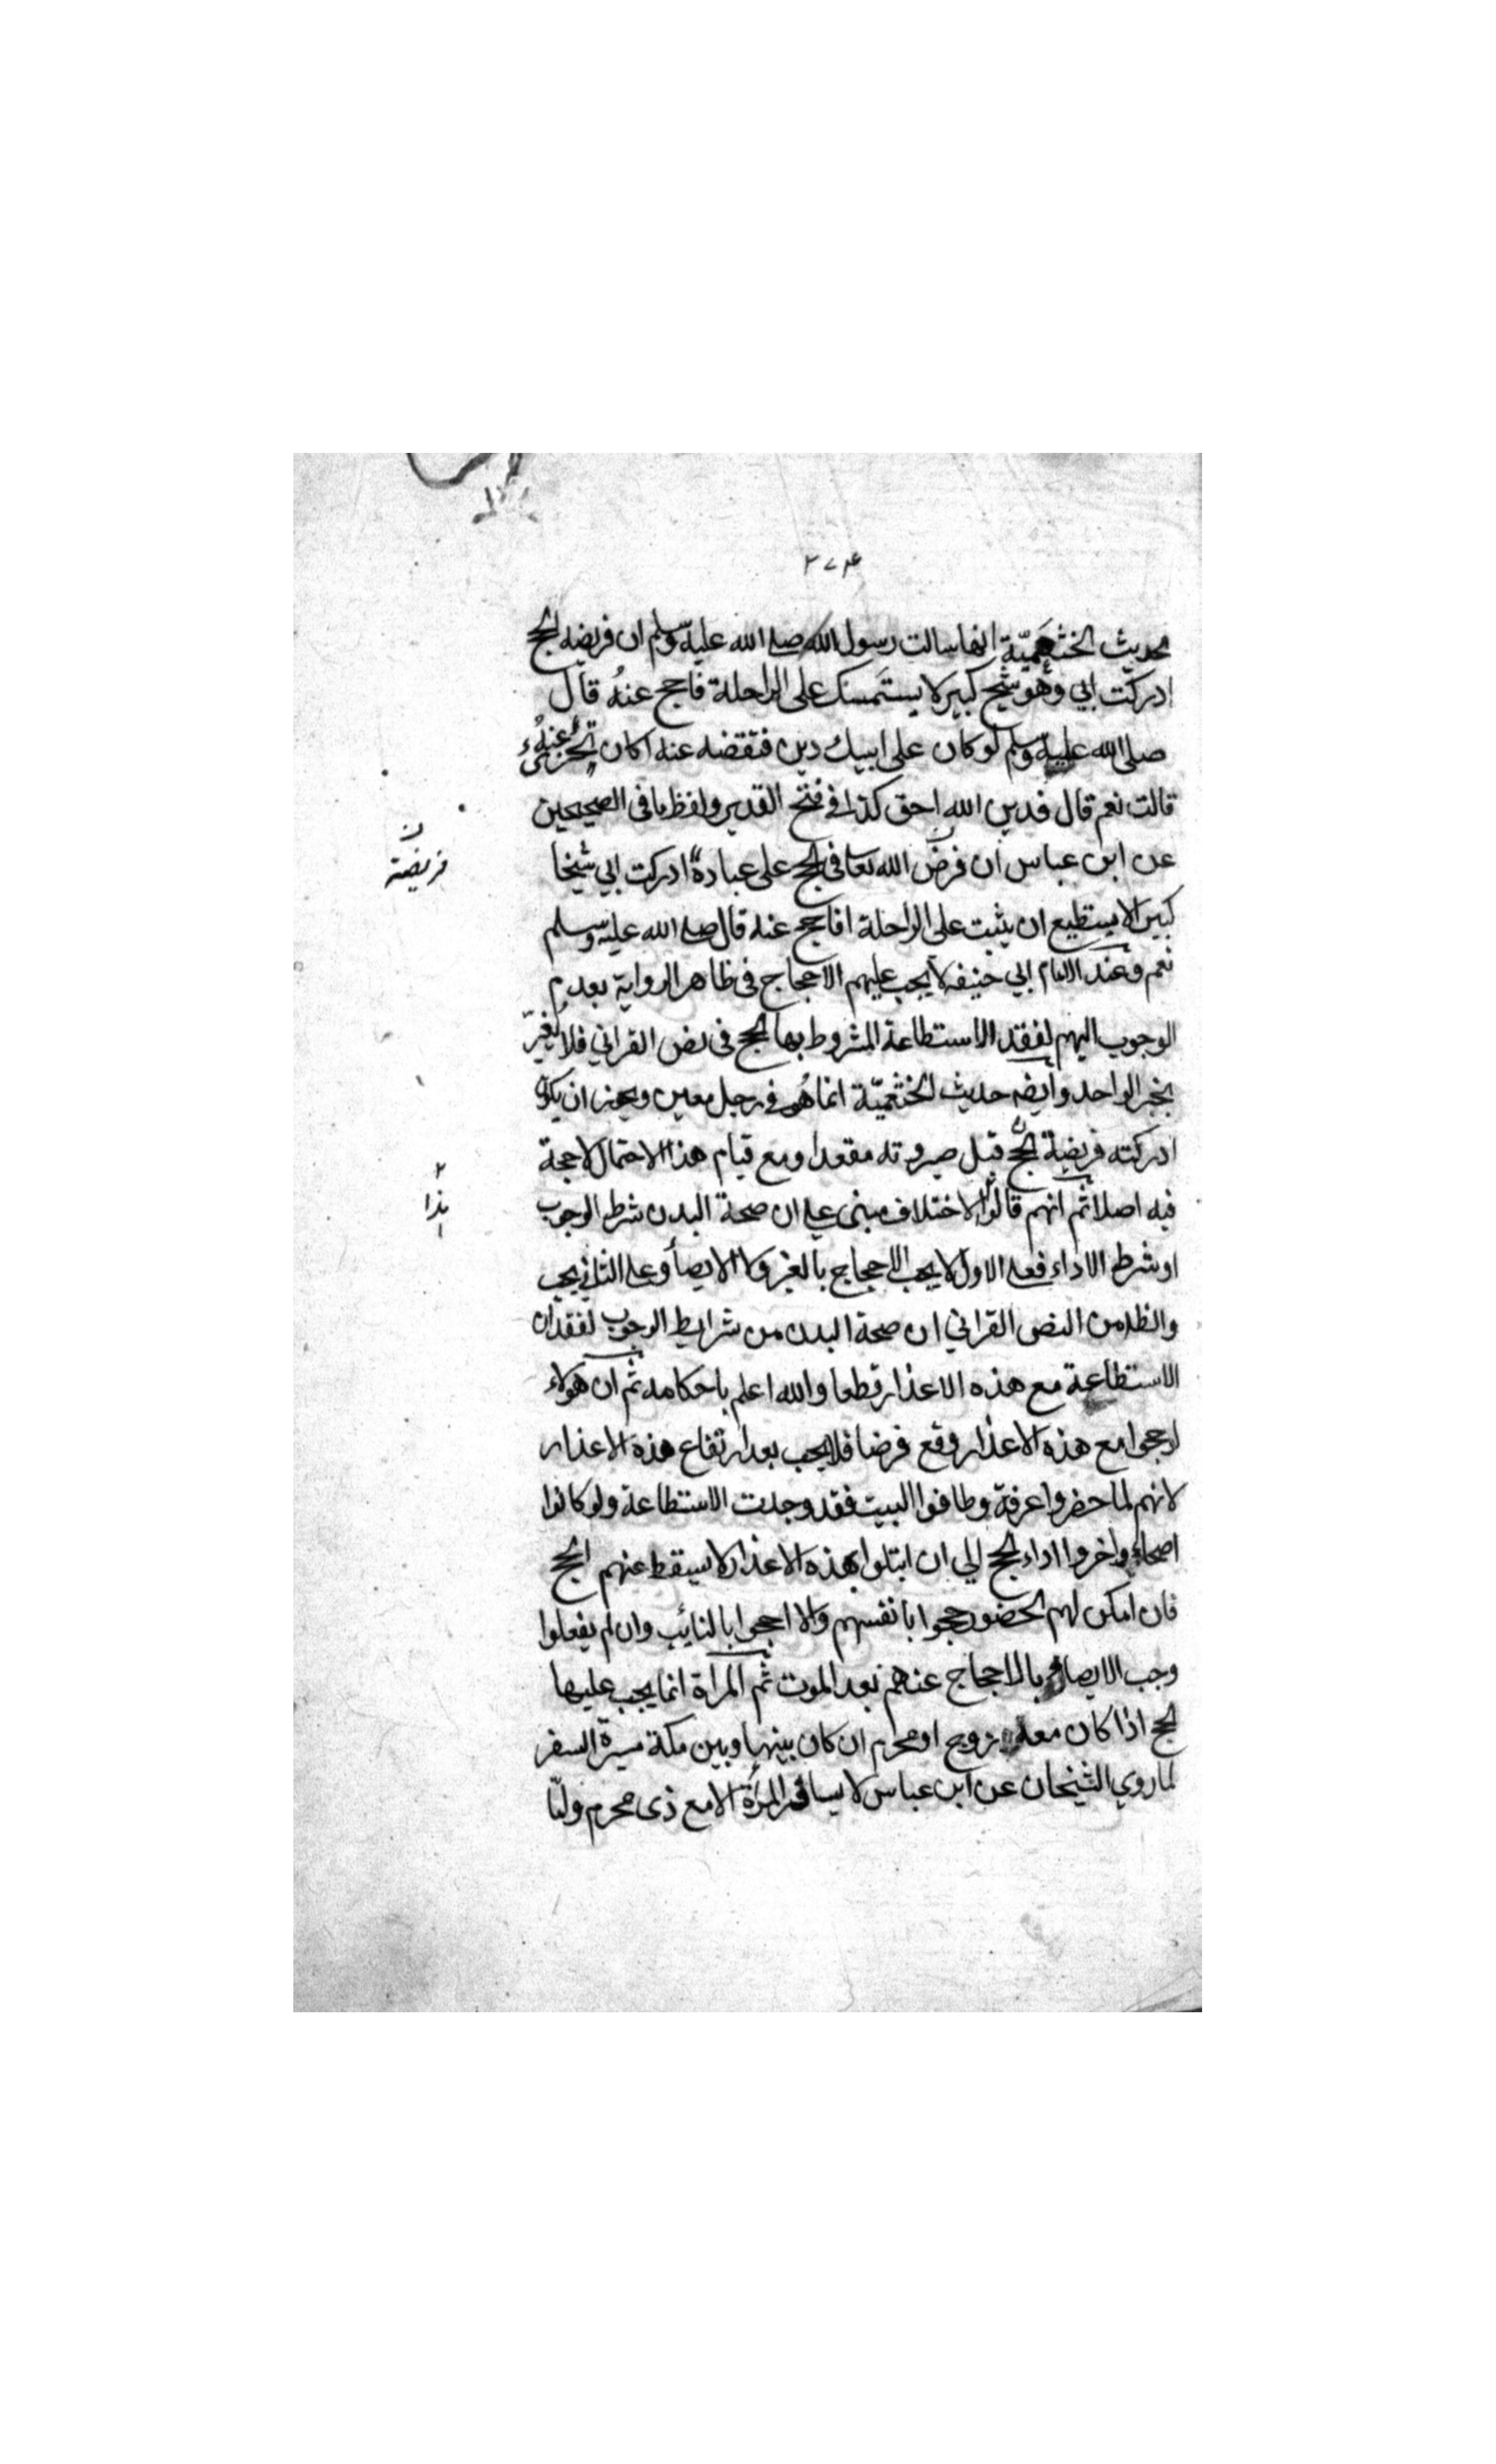 ٢٧٤
لحديث الخثعميّة انها سالت رسول الله صلى الله عليه وسلم ان فريضه الحج
ادركت ابي وهو شيخ كبير لا يستمسك على الراحلة فاحج عنهُ قال
صلى الله عليه وسلم لو كان على ابيك دين فتقضه عنه اكان يجزئ عنه
قالت نعم قال فدين الله احق كذا في فتح القدير ولفظ ما في الصحيحين
عن ابن عباس ان فرض الله تعالى في الحج على عباده ادركت ابي شيخا
كبيرا لا يستطيع ان يثبت على الراحلة افاحج عنه قال صلى الله عليه وسلم
نعم وعند الامام ابي حنيفه لا يجب عليهم الاحجاج في ظاهر الرواية بعدم
الوجوب اليهم لفقد الاستطاعة المشروط بها الحج في نص القراني فلا يُغيّر
بخبر الواحد وايضه حديث الخثعميّة انما هُو في رجل معين ويجوز ان يكون
ادركته فريضة الحج قبل صيروته مقعدا ومع قيام هذا الاحتمال لا حجة
فيه اصلا ثم انهم قالوا الاختلاف مبنى على ان صحة البدن شرط الوجوب
او شرط الاداء فعلى الاول لا يجب الاحجاج بالغير ولا الايصأ وعلى الثاني يجب
والظ من النص القراني ان صحة البدن من شرايط الوجوب لفقدان
الاستطاعة مع هذه الاعذار قطعا والله اعلم باحكامه ثم ان هولاء
لو حجوا مع هذه الاعذار وقع فرضا فلا يجب بعد ارتفاع هذه الاعذار
لانهم لما حضروا عرفة وطافوا البيت فقد وجدت الاستطاعة ولو كانوا
اصحاء واخروا اداء الحج الي ان ابتلوا بهذه الاعذار لا يسقط عنهم الحج
فان امكن لهم الحضور حجوا بانفسهم والا احجوا بالنائب وان لم يفعلوا
وجب الايصاء بالاحجاج عنهم بعد الموت ثم المراة انما يجب عليها
الحج اذا كان معه زوج او محرم ان كان بينها وبين مكة مسيرة السفر
لما روي الشيخان عن ابن عباس لا يسافر المرأة الا مع ذى محرم ولنا
ن
فريضة
٢
هذا